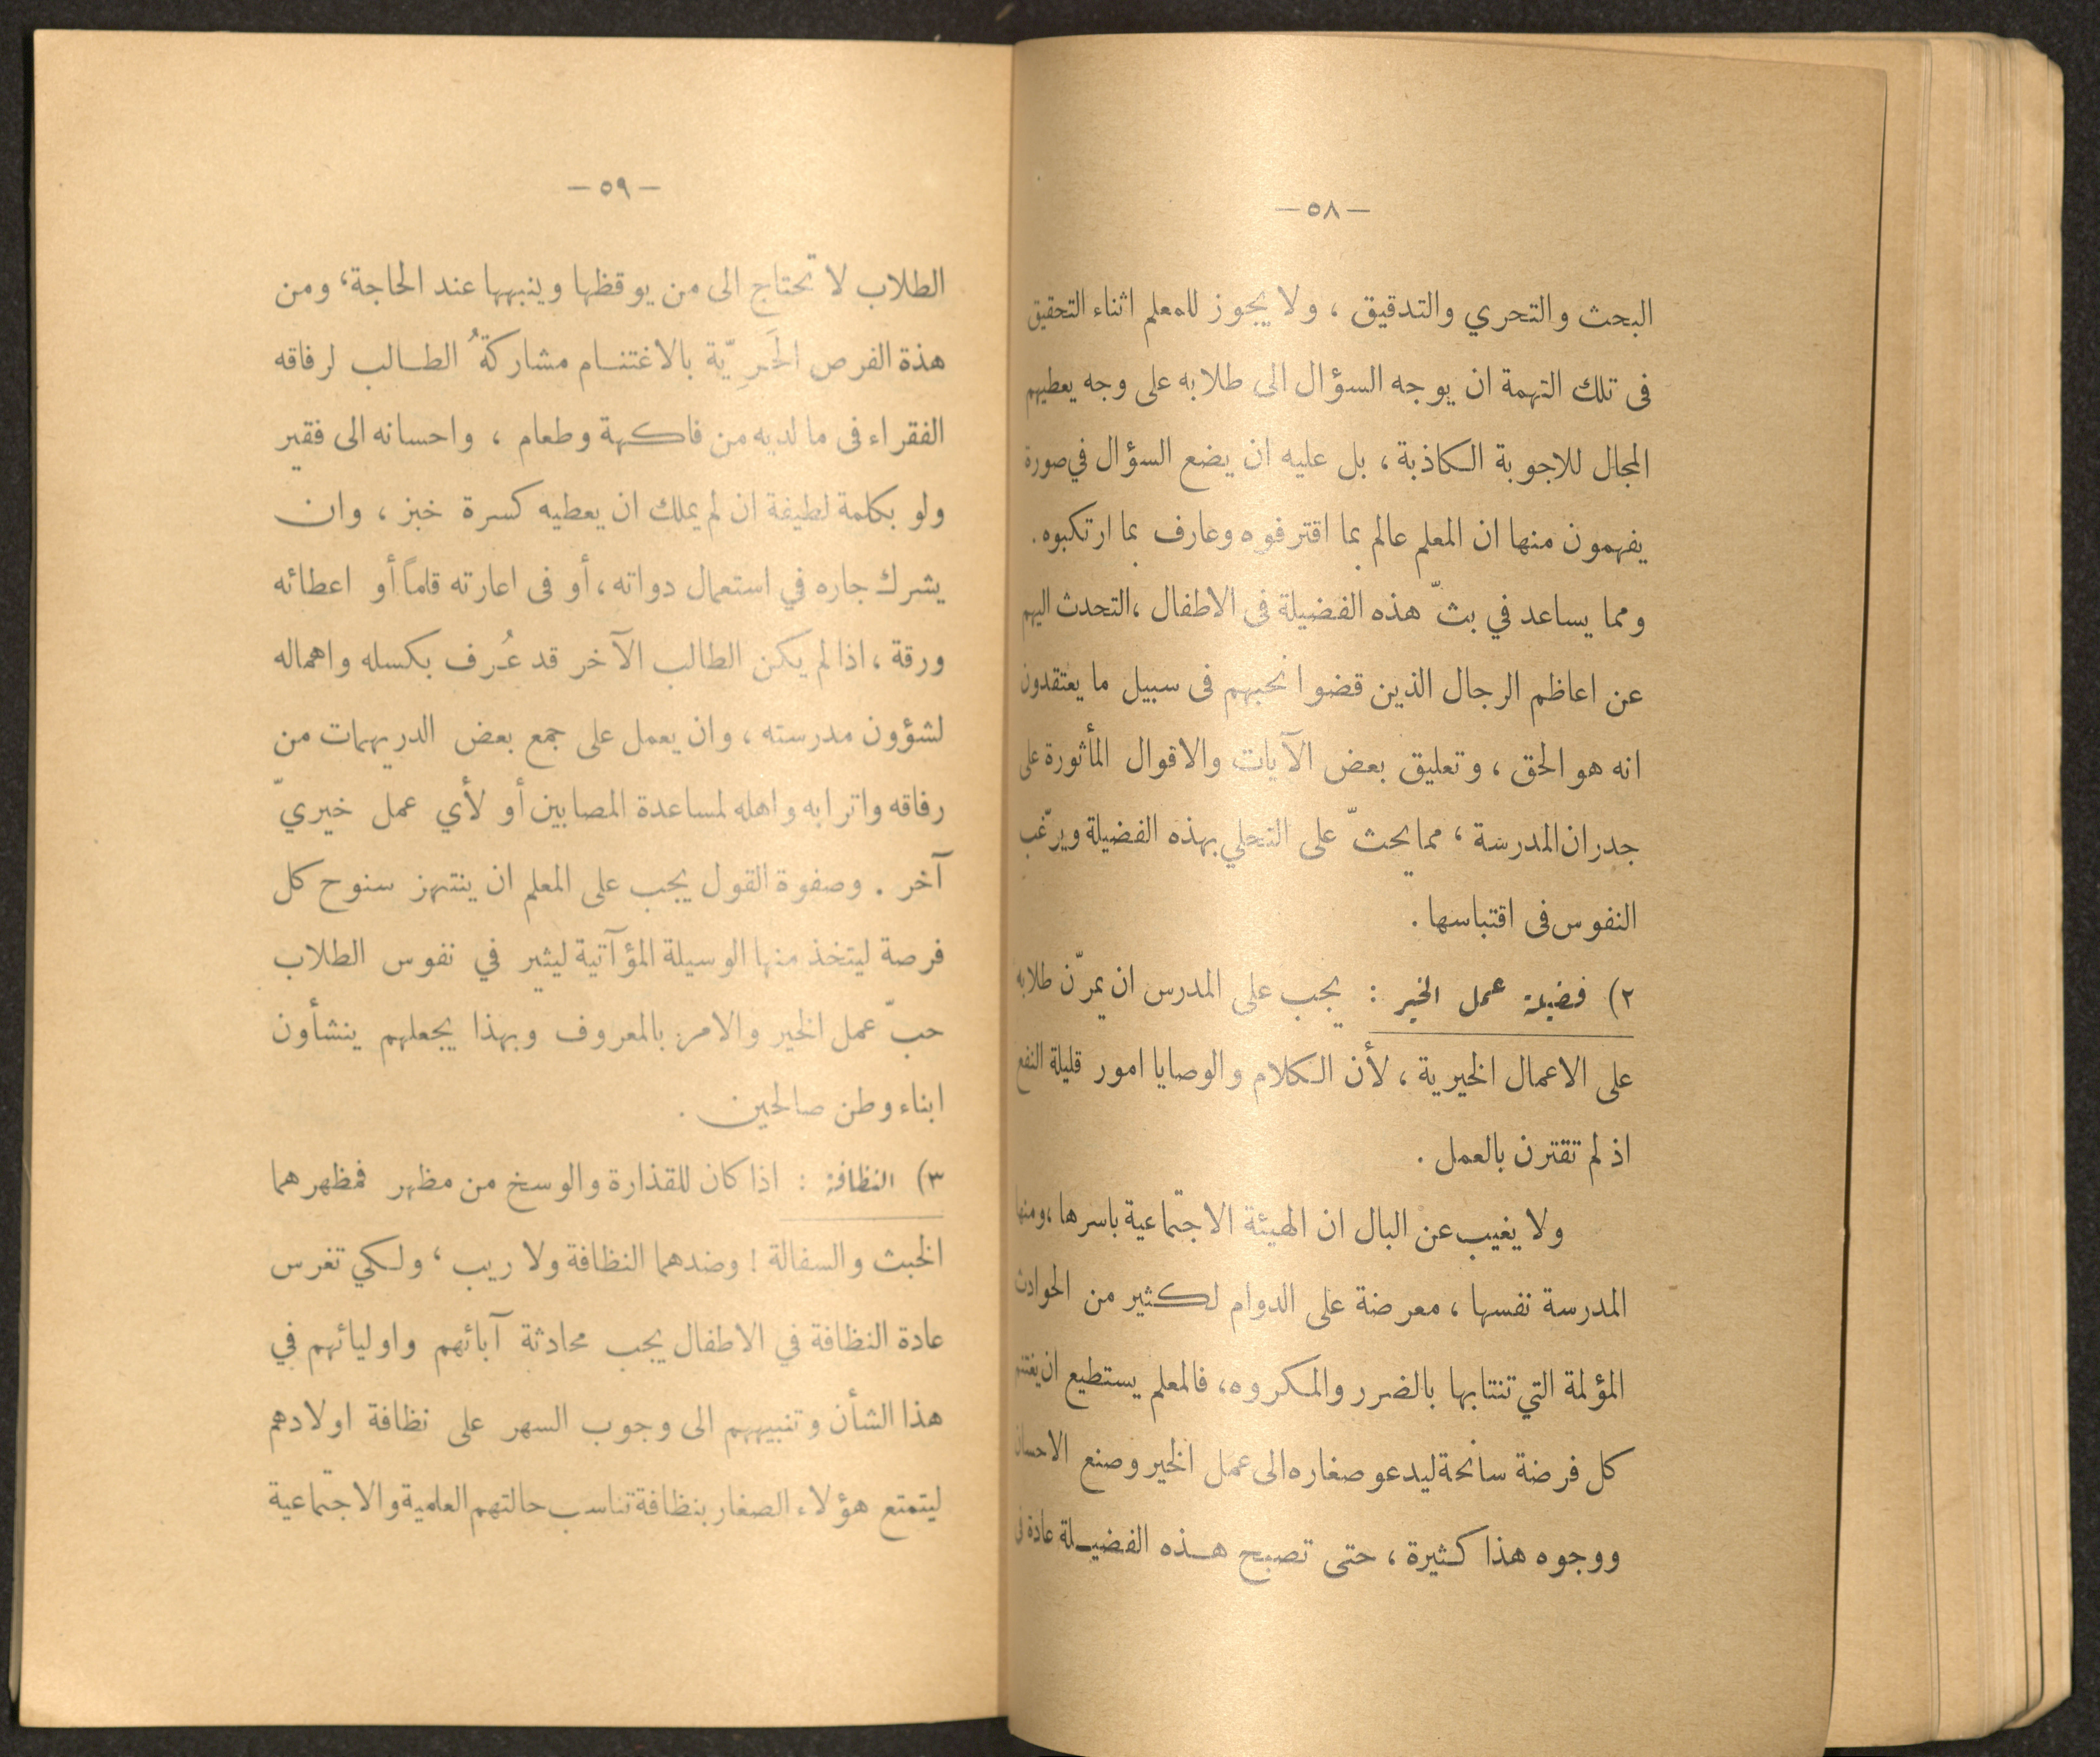 — ٥٨ —
البحث والتحري والتدقيق ، ولا يجوز للمعلم اثناء التحقيق
فى تلك التهمة ان يوجه السؤال الى طلابه على وجه يعطيهم
المجال للاجوبة الكاذبة ، بل عليه ان يضع السؤال في صورة
يفهمون منها ان المعلم عالم بما اقترفوه وعارف بما ارتكبوه .
ومما يساعد في بثّ هذه الفضيلة فى الاطفال ، التحدث اليهم
عن اعاظم الرجال الذين قضوا نحبهم فى سبيل ما يعتقدون
انه هو الحق ، وتعليق بعض الآيات والاقوال المأثورة على
جدران المدرسة ، مما يحثّ على التحلي بهذه الفضيلة ويرّغب
النفوس فى اقتباسها .
٢) فضيلة عمل الخير : يجب على المدرس ان يمرّن طلابه
على الاعمال الخيرية ، لأن الكلام والوصايا امور قليلة النفع
اذ لم تقترن بالعمل .
ولا يغيب عن البال ان الهيئة الاجتماعية باسرها ، ومنها
المدرسة نفسها ، معرضة على الدوام لكثير من الحوادث
المؤلمة التي تنتابها بالضرر والمكروه ، فالمعلم يستطيع ان يغتنم
كل فرضة سانحة ليدعو صغاره الى عمل الخير وصنع الاحسان
ووجوه هذا كثيرة ، حتى تصبح هذه الفضيلة عادة فى
— ٥٩ —
الطلاب لا تحتاج الى من يوقظها وينبهها عند الحاجة ، ومن
هذة الفرص الحَرِيّة بالاغتنام مشاركةُ الطالب لرفاقه
الفقراء فى ما لديه من فاكهة وطعام ، واحسانه الى فقير
ولو بكلمة لطيفة ان لم يملك ان يعطيه كسرة خبز ، وان
يشرك جاره في استعمال دواته ، أو فى اعارته قلماً أو اعطائه
ورقة ، اذا لم يكن الطالب الآخر قد عُرف بكسله واهماله
لشؤون مدرسته ، وان يعمل على جمع بعض الدريهمات من
رفاقه واترابه واهله لمساعدة المصابين أو لأي عمل خيريّ
آخر . وصفوة القول يجب على المعلم ان ينتهز سنوح كل
فرصة ليتخذ منها الوسيلة المؤآتية ليثير في نفوس الطلاب
حبّ عمل الخير والامر بالمعروف وبهذا يجعلهم ينشأون
ابناء وطن صالحين .
٣) النظافة : اذا كان للقذارة والوسخ من مظهر فمظهرهما
الخبث والسفالة ! وضدهما النظافة ولا ريب ، ولكي تغرس
عادة النظافة في الاطفال يجب محادثة آبائهم واوليائهم في
هذا الشأن وتنبيههم الى وجوب السهر على نظافة اولادهم
ليتمتع هؤلاء الصغار بنظافة تناسب حالتهم العلمية والاجتماعية